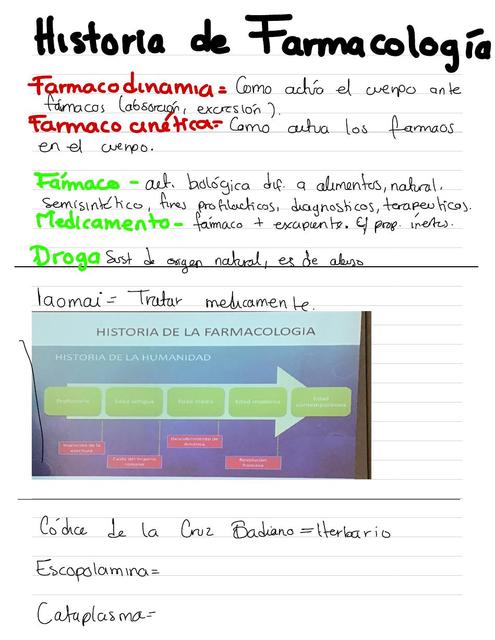 Historia de Farmacología
Farmacodinamia = Como actúo el cuerpo ante
fármacos (absorción, excresión).
Farmaco cinética = Como actua los farmacos
en el cuerpo.
Fármaco - act. biológica dif. a alimentos, natural.
Semisintético, fines profilacticos, diagnosticos, terapeuticos.
Medicamento - fármaco + excipiente. c/ prop. inertes.
Droga Sust de origen natural, es de abuso
Iaomai = Tratar medicamente.
HISTORIA DE LA FARMACOLOGIA
HISTORIA DE LA HUMANIDAD
Prehistoria Edad antigua Edad media Edad moderna Edad contemporánea
Invención de la escritura
Descubrimiento de América
Caída del imperio romano
Revolución francesa
Códice de la Cruz Badiano = Herbario
Escopolamina =
Cataplasma =